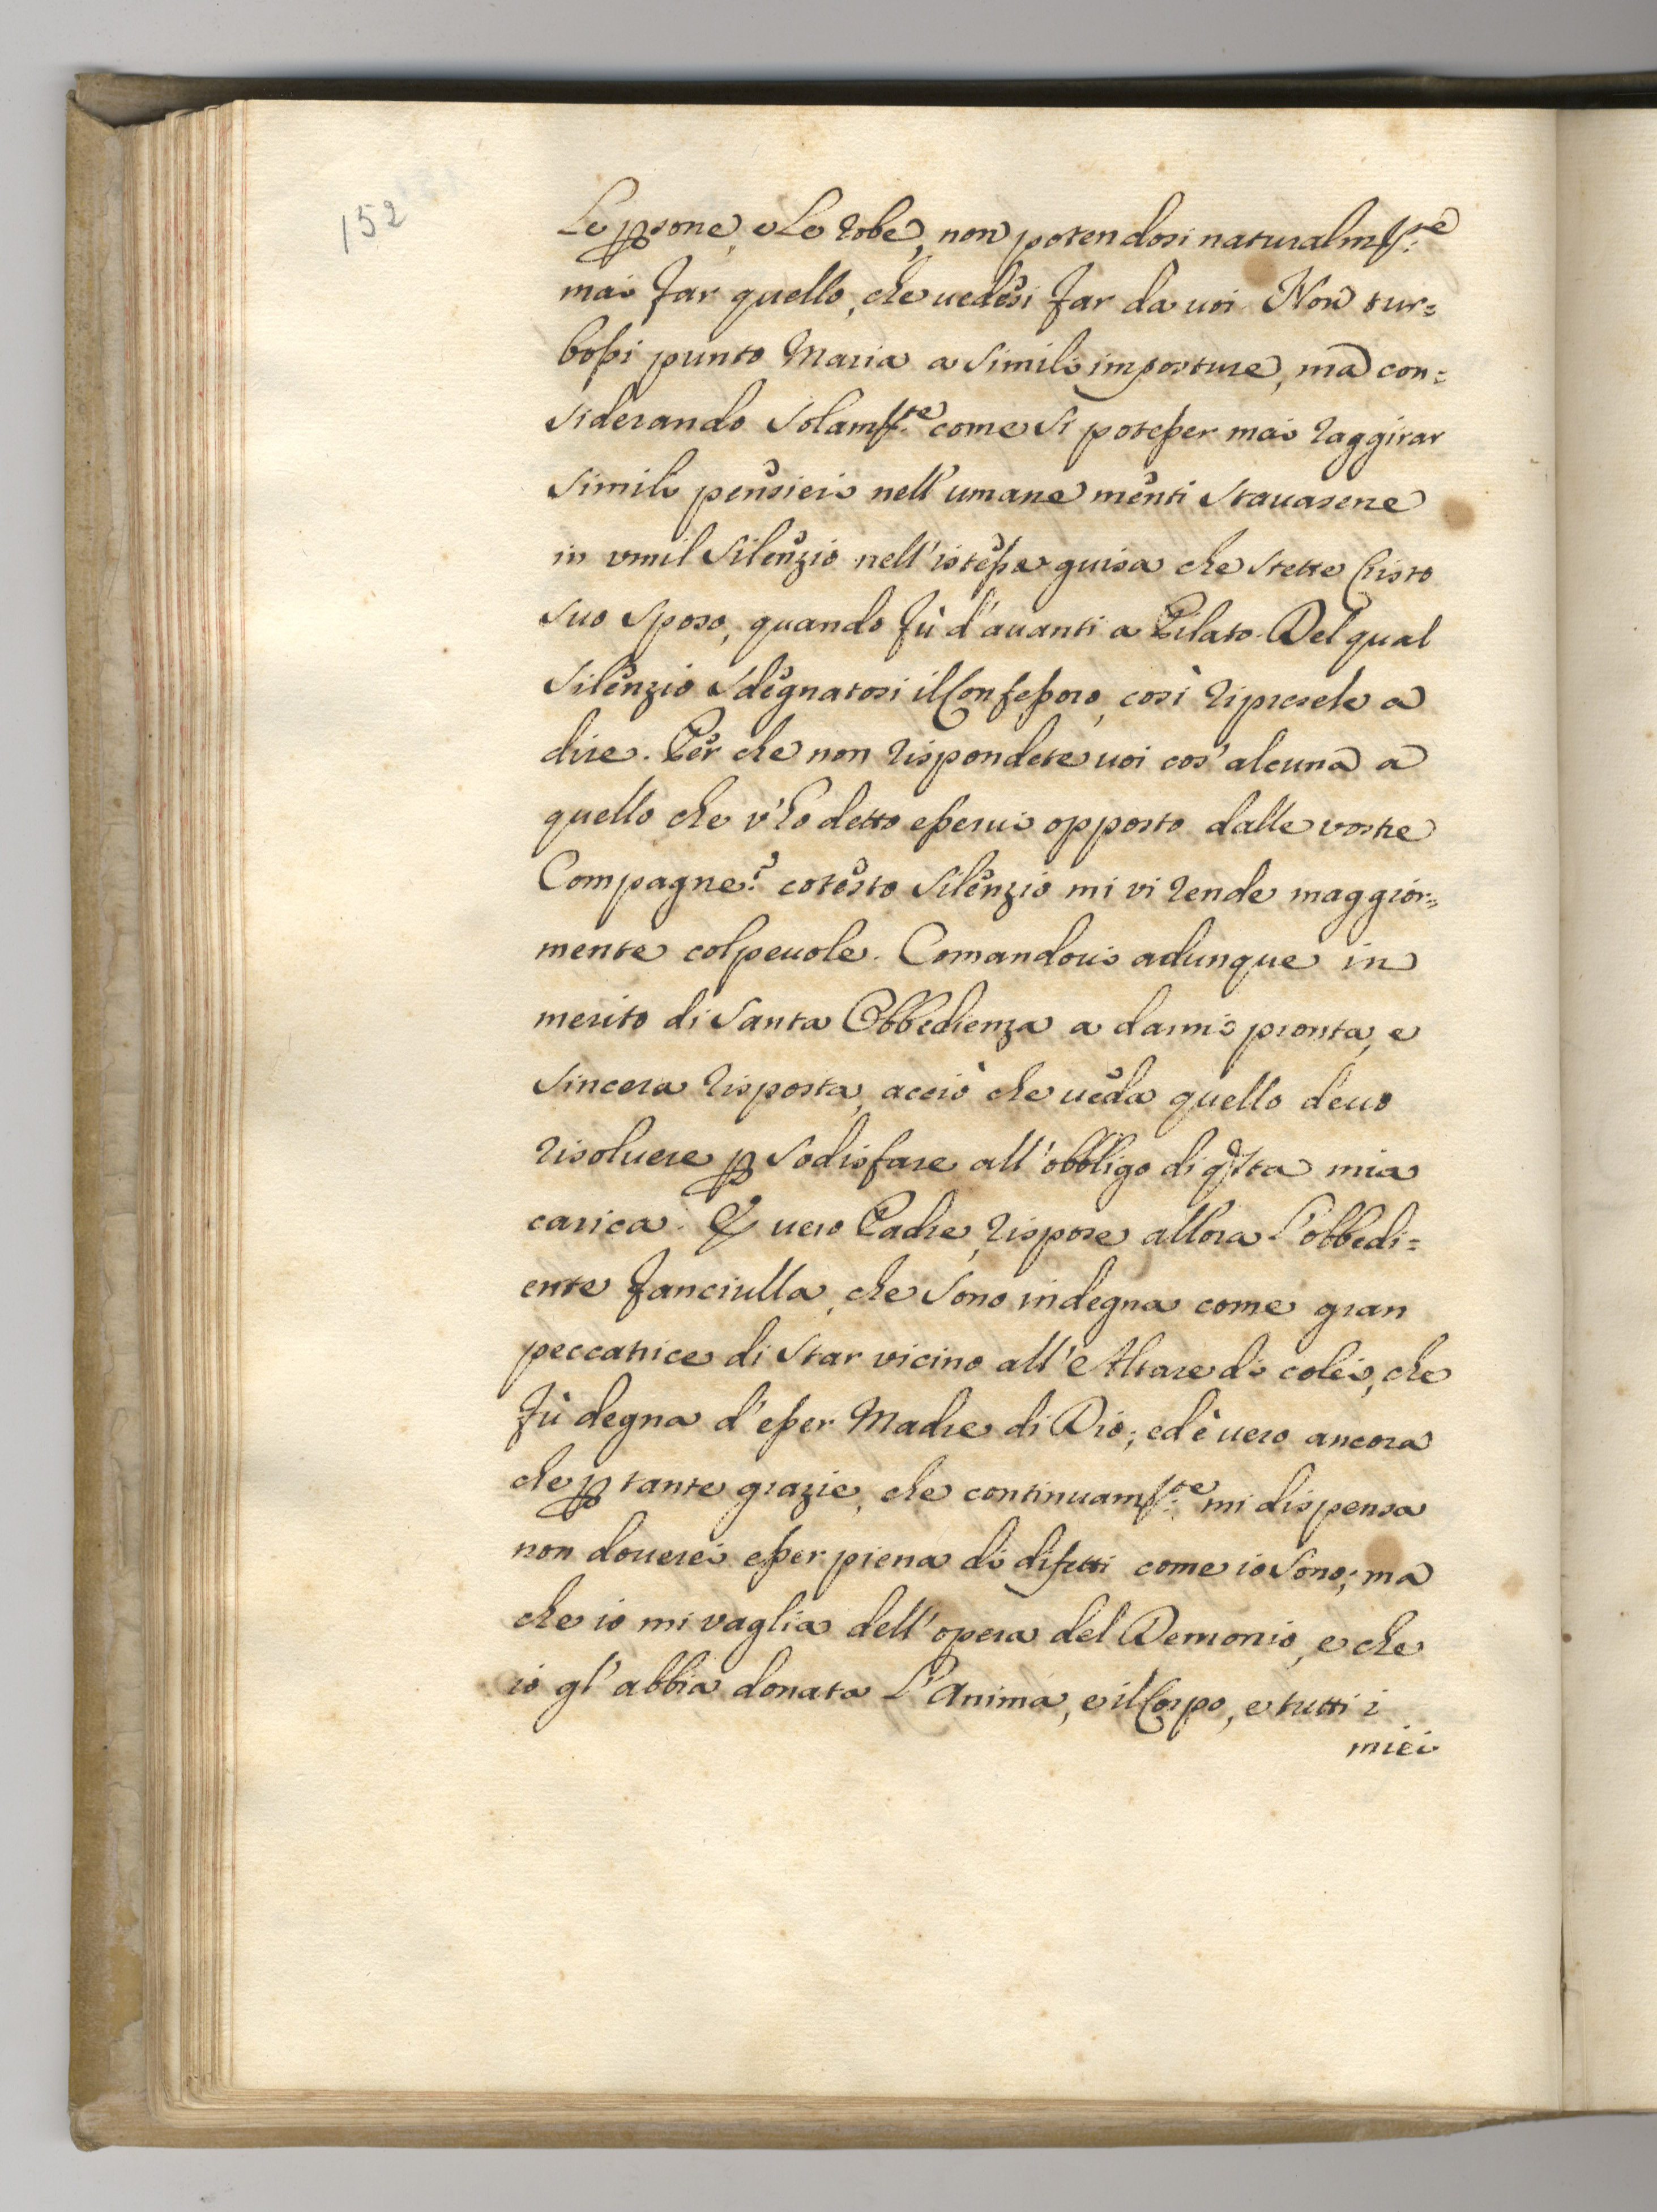 152
Le ꝑsone, e Le robe, non potendosi naturalmte
mai far quello, che uedesi far da uoi. Non tur=
bossi punto Maria a simili imposture, ma con=
siderando solamte come si potesser mai raggirar
simili pensieri nell'umane menti stauasene
in vmil silenzio nell'istessa guisa che stette Cristo
suo sposo, quando fù d'auanti a Pilato. Del qual
silenzio sdegnatosi il Confessoro, così ripresele a
dire. Per che non rispondete uoi cos'alcuna a
quello che v'ho detto esserui opposto dalle vostre
Compagne? cotesto silenzio mi vi rende maggior=
mente colpeuole. Comandoui adunque in
merito di santa Obbedienza a darmi pronta, e
sincera risposta, acciò che ueda quello deuo
risoluere ꝑ sodisfare all'obbligo di qsta mia
carica. È uero Padre, rispose allora l'obbedi=
ente fanciulla, che sono indegna come gran
peccatrice di star vicino all'Altare di colei, che
fù degna d'esser Madre di Dio; ed è uero ancora
che ꝑ tante grazie, che continuamte mi dispensa
non douerei esser piena di difetti come io sono; ma
che io mi vaglia dell'opera del Demonio, e che
io gl'abbia donata L'Anima, e il Corpo, e tutti i
miei